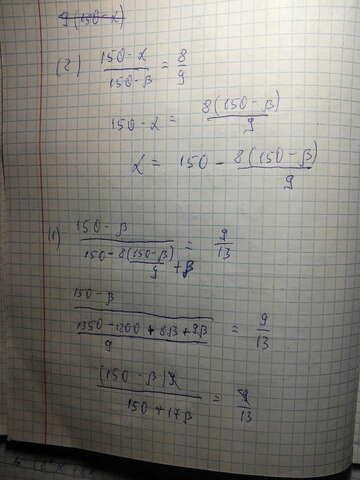 9(150-α)
(2) (150-α)/(150-β) = 8/9
150-α = 8(150-β)/9
α = 150 - 8(150-β)/9
(1) (150-β)/(150-8(150-β)/9+β) = 9/13
(150-β)/((1350-1200+8β+9β)/9) = 9/13
(150-β)9/(150+17β) = 9/13